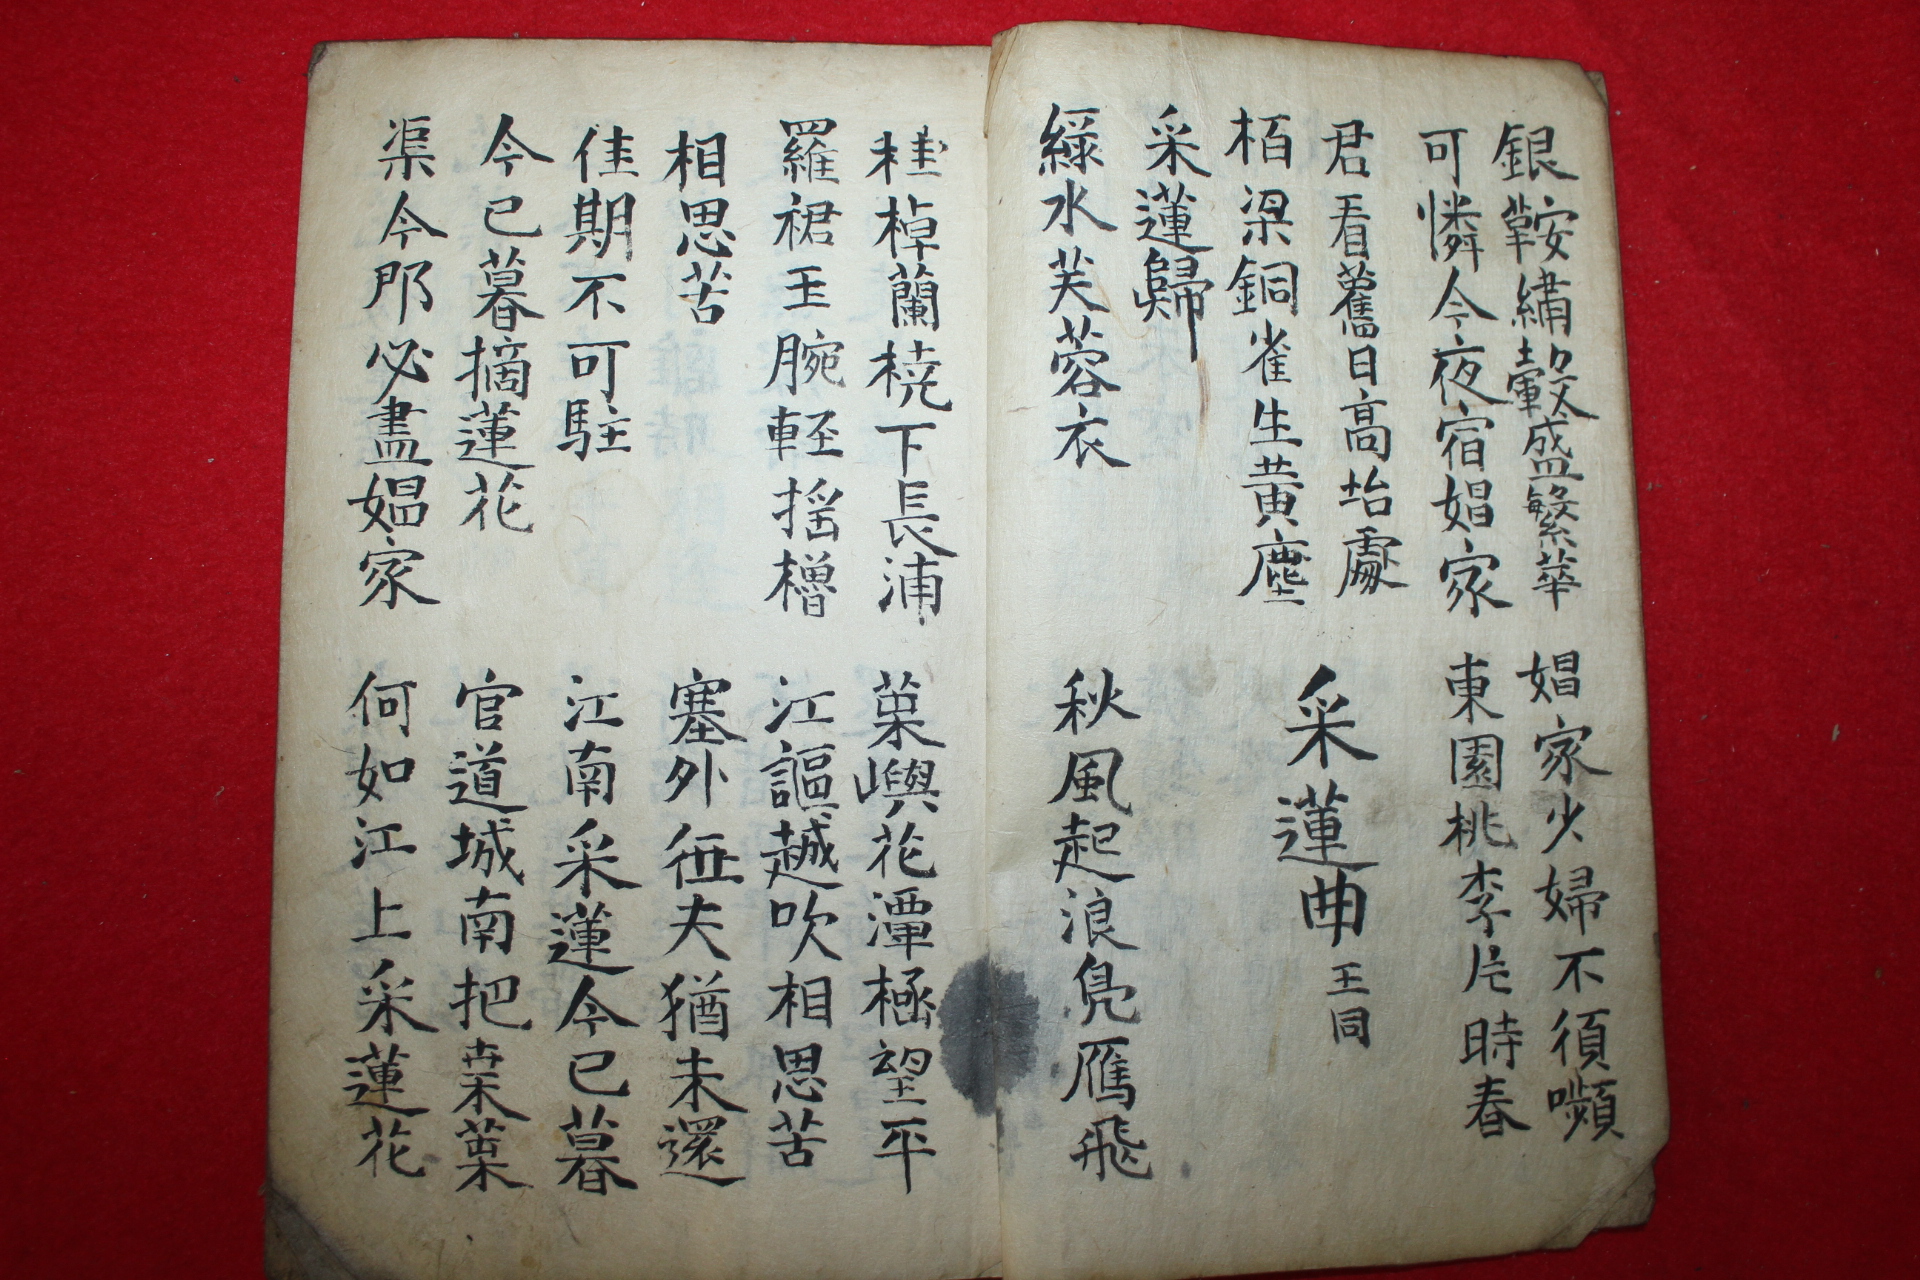 銀鞍繡轂盛繁華 娼家少婦不須嚬
可憐今夜宿娼家 東園桃李片時春
君看舊日高坮處
栢梁銅雀生黃塵
采蓮曲 王同
采蓮歸
綠水芙蓉衣 秋風起浪鳧雁飛
桂棹蘭橈下長浦
羅裙玉腕輕搖櫓
葉嶼花潭極望平
江謳越吹相思苦
相思苦
佳期不可駐
塞外征夫猶未還
江南采蓮今已暮
今已暮摘蓮花
渠今那必盡娼家
官道城南把桑葉
何如江上采蓮花